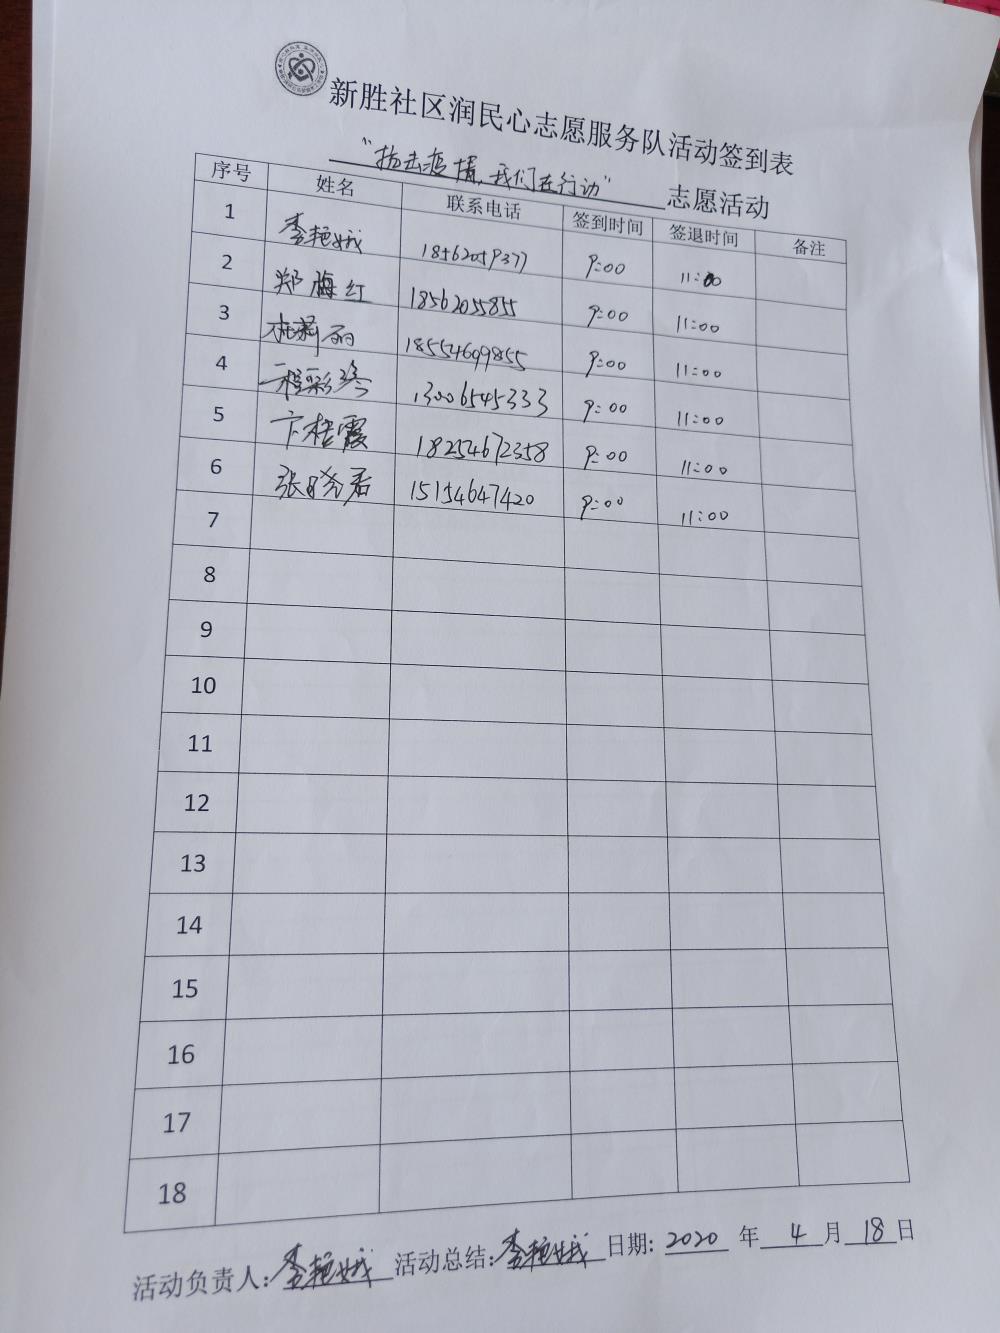 新胜社区润民心志愿服务队活动签到表
“抗击疫情，我们在行动” 志愿活动
序号 姓名 联系电话 签到时间 签退时间 备注
1 李艳娥 18562059377 9:00 11:00
2 郑梅红 18562055855 9:00 11:00
3 杜莉丽 18554609855 9:00 11:00
4 程彩玲 13006545333 9:00 11:00
5 卞桂霞 18254672358 9:00 11:00
6 张晓君 15154647420 9:00 11:00
7
8
9
10
11
12
13
14
15
16
17
18
活动负责人：李艳娥 活动总结：李艳娥 日期：2020 年 4 月 18 日